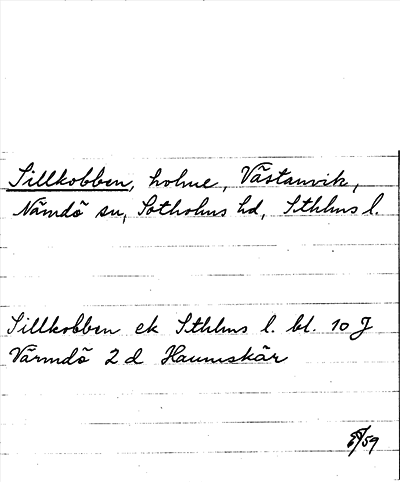 Sillkobben, holme, Västanvik,
Nämdö sn, Sotholms hd, Sthlms l.
Sillkobben ek Sthlms l. bl. 10 J
Värmdö 2 d Haumskär
/59